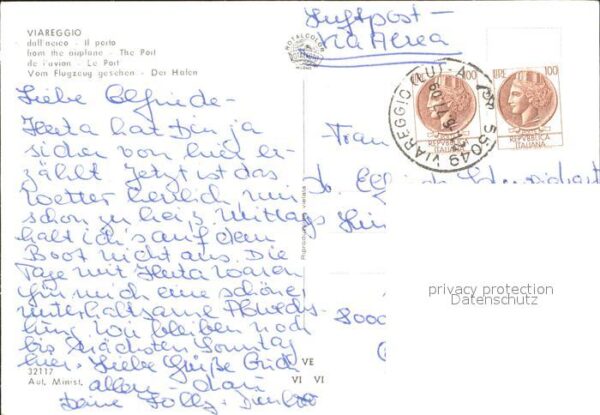 VIAREGGIO
dall'aereo - Il porto
from the airplane - The Port
de l'avion - Le Port
Vom Flugzeug gesehen - Der Hafen
Luftpost -
Via Aerea
ROTALCOLOR
LIRE 100
LIRE 100
REPVBBLICA ITALIANA
REPVBBLICA ITALIANA
55049 VIAREGGIO (LU)
Liebe Elfriede -
Herta hat Dir ja
sicher von hier er-
zählt. Jetzt ist das
Wetter herrlich, mir
schon zu heiß, Mittags
halt ich's auf dem
Boot nicht aus. Die
Tage mit Herta waren
für mich eine schöne
unterhaltsame Abwechs-
lung. Wir bleiben noch
bis nächsten Sonntag
hier. Liebe Grüße Euch
allen -
Deine Lolly -
Frau
Dr.
8000
privacy protection
Datenschutz
32117
Aut. Minist.
VE
VI VI
Riproduzione vietata